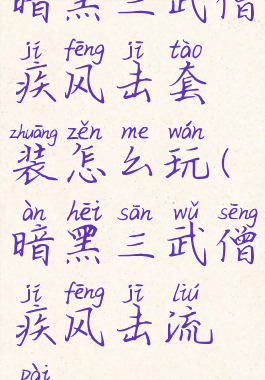 暗黑三武僧
jí fēng jī tào
疾风击套
zhuāng zěn me wán
装怎么玩(
àn hēi sān wǔ sēng
暗黑三武僧
jí fēng jī liú
疾风击流
pài